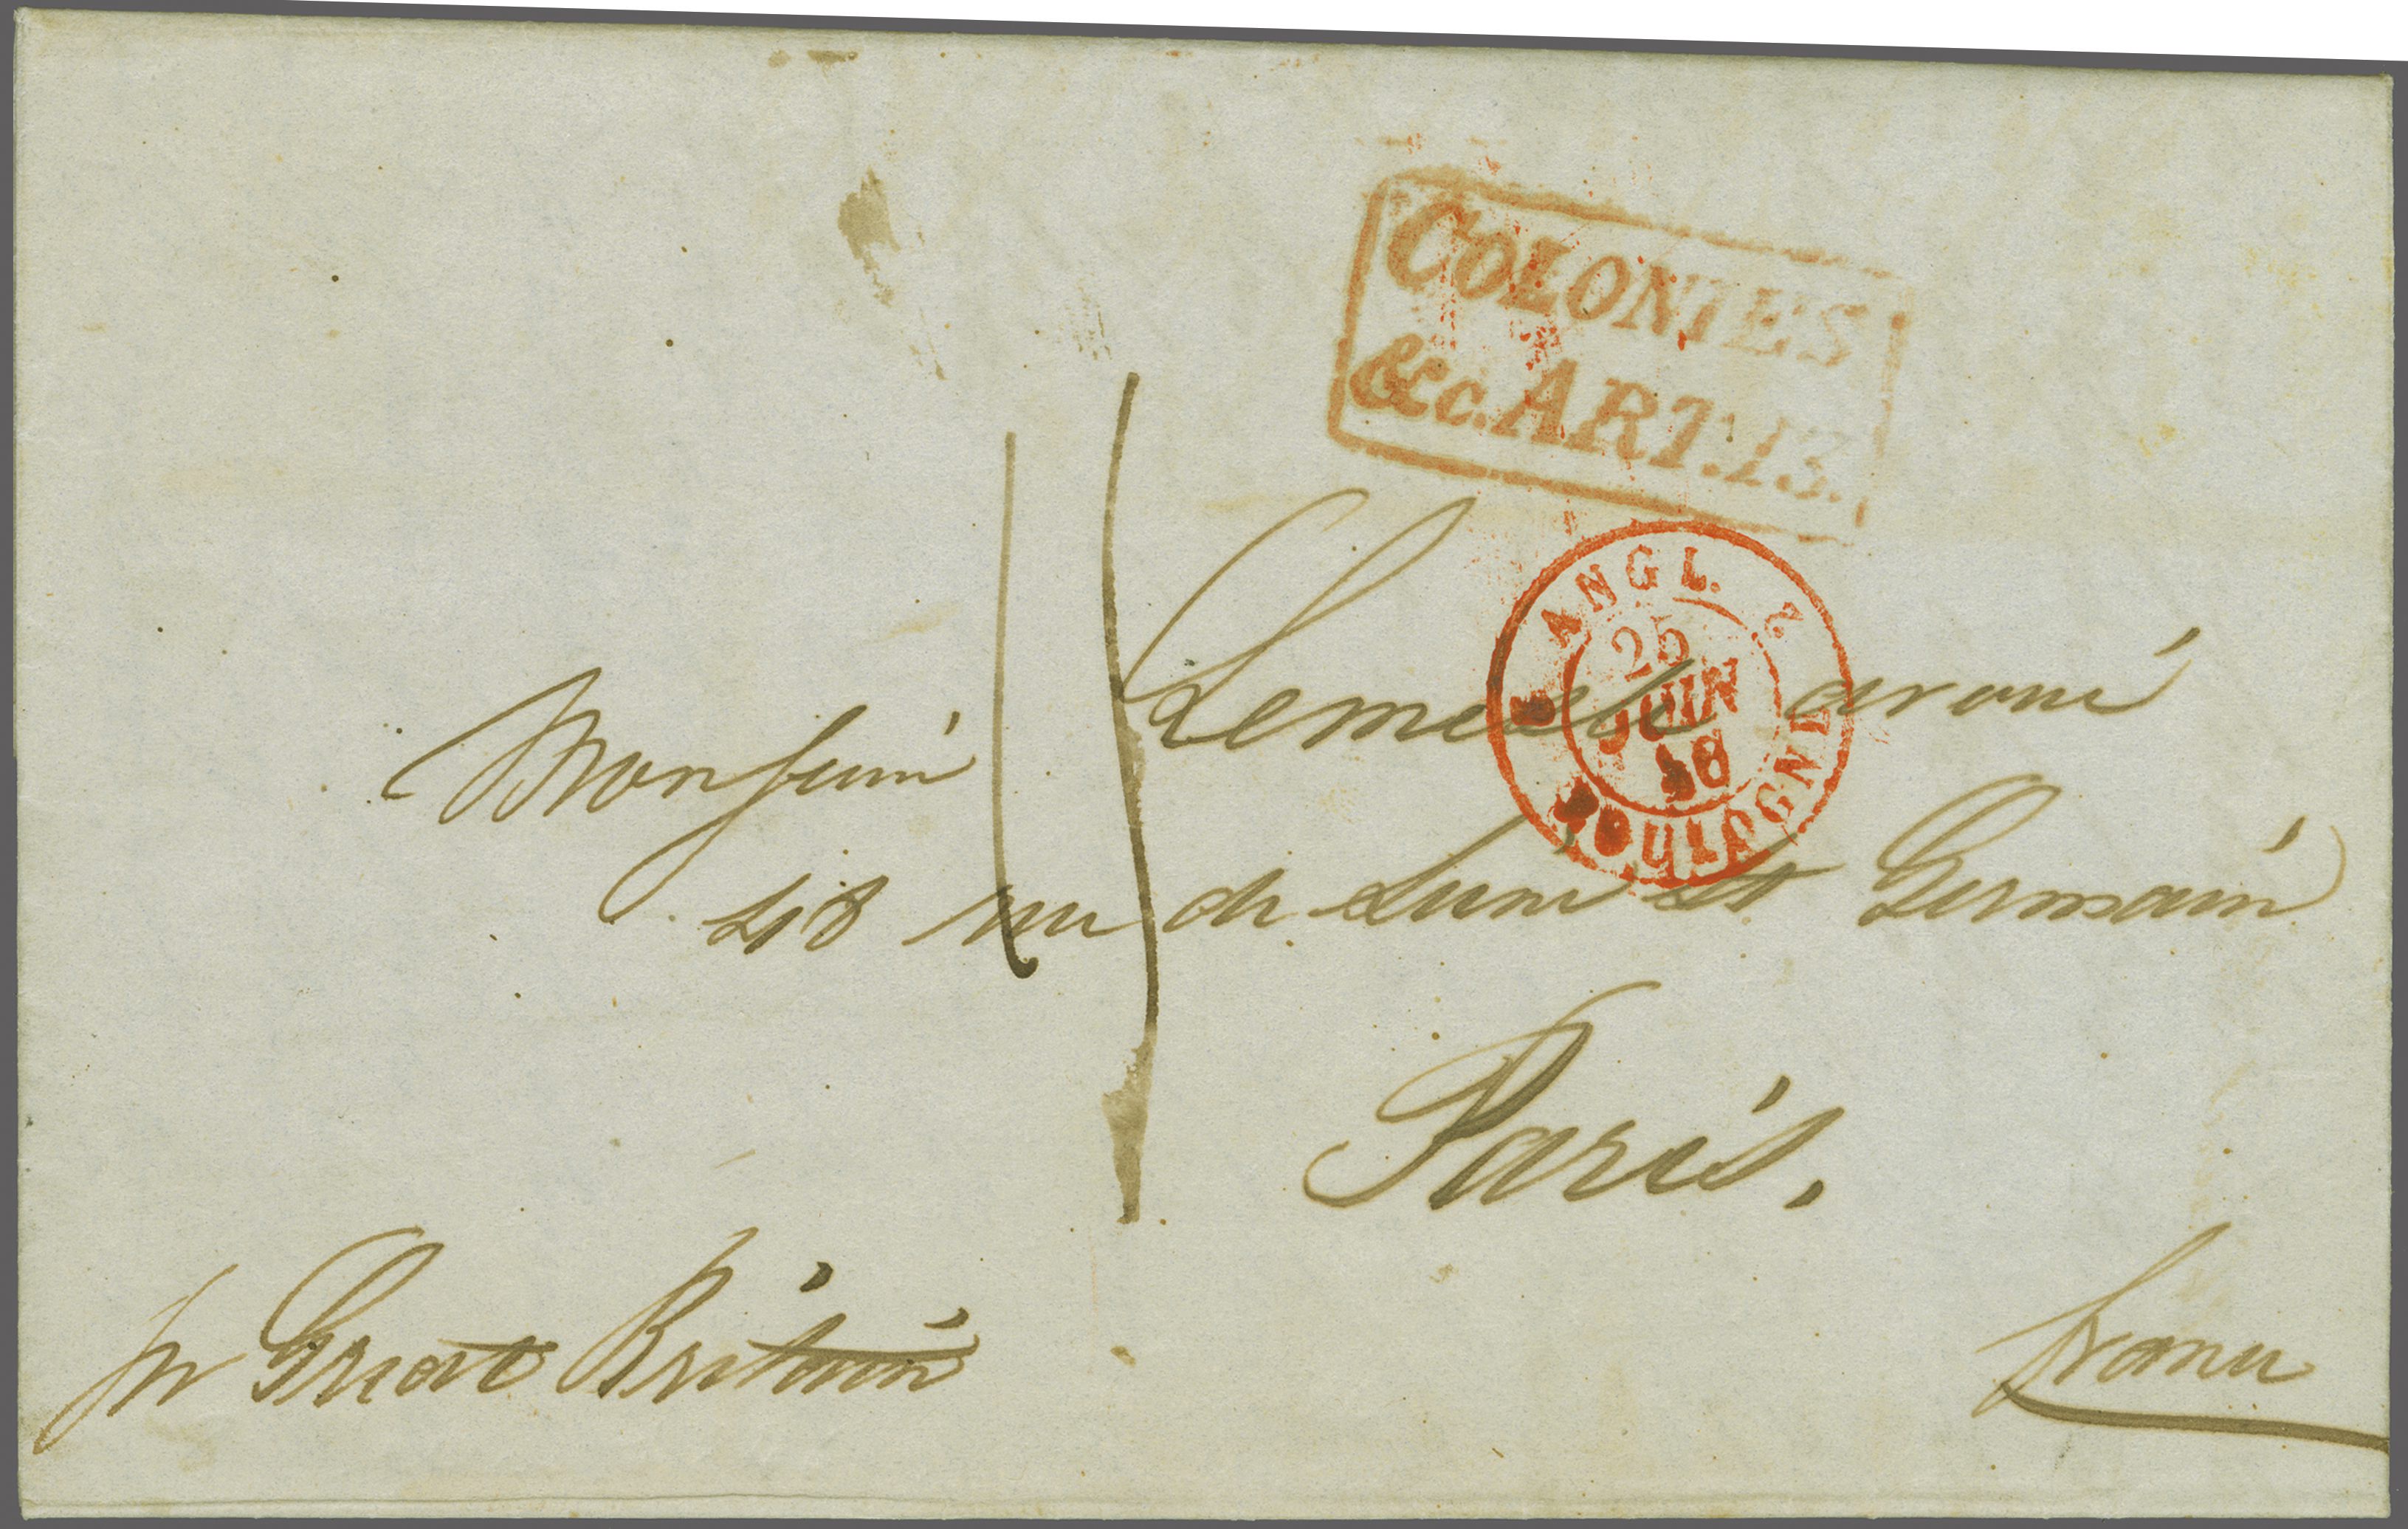 COLONIES
&c. ART. 13.
ANGL. 2.
25
JUIN
46
BOULOGNE
Monsieur Lemerle avoué
48 rue de Seine St Germain
Paris.
pr Great Britain
France